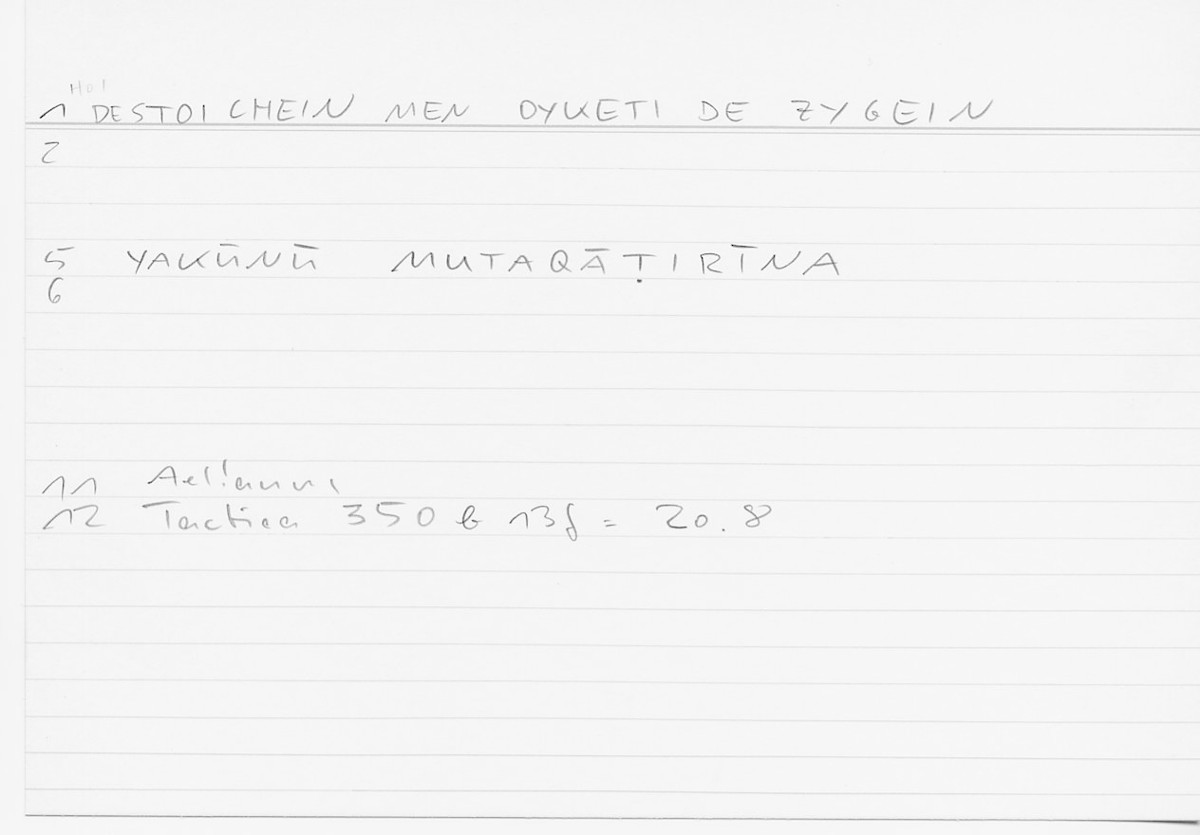 HOI
1 DESTOICHEIN MEN OYKETI DE ZYGEIN
2
5 YAKŪNŪ MUTAQĀṬIRĪNA
6
11 Aelianus
12 Tactica 350 b 13f = 20.8